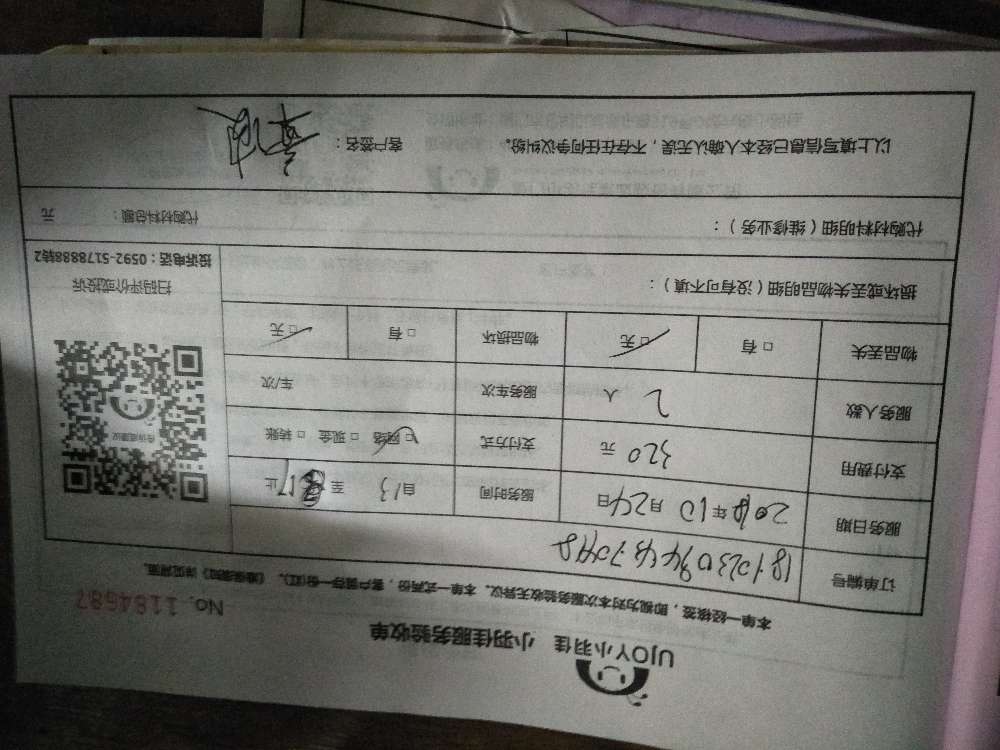 UJOY小羽佳 小羽佳服务验收单
No. 1184687
本单一经核签，即视为对本次服务验收无异议。本单一式两份，客户留存一份(红)。《维保须知》详见背面。
订单编号
服务日期 20 年10月24日 服务时间 自13 至 17止
支付费用 320 元 支付方式 □网络 □现金 □转账
服务人数 2 人 服务车次 车/次
物品丢失 □有 □无 物品损坏 □有 □无
扫码评价或投诉
投诉电话：0592-5178888转2
损坏或丢失物品明细（没有可不填）：
代购材料明细（维修业务）： 代购材料总额： 元
以上填写信息已经本人确认无误，不存在任何争议纠纷。 客户签名：